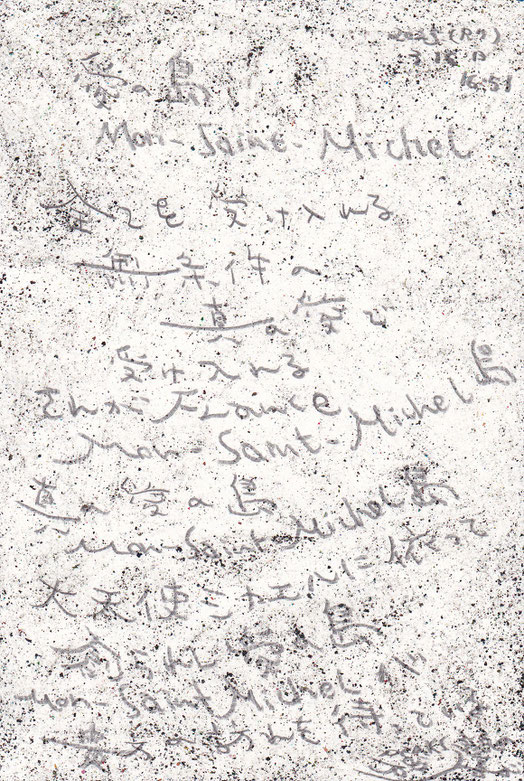 2025(R7)
3.18
16:51
愛の島
Mon-Saint-Michel
全てを受け入れる
無条件の
真の愛で
受け入れる
それがFLance
Mon-Saint-Michel島
真の愛の島
Mon-Saint-Michel島
大天使ミカエルに依って
創られし愛の島
Mon-Saint Michel
貴方の訪れを待っている